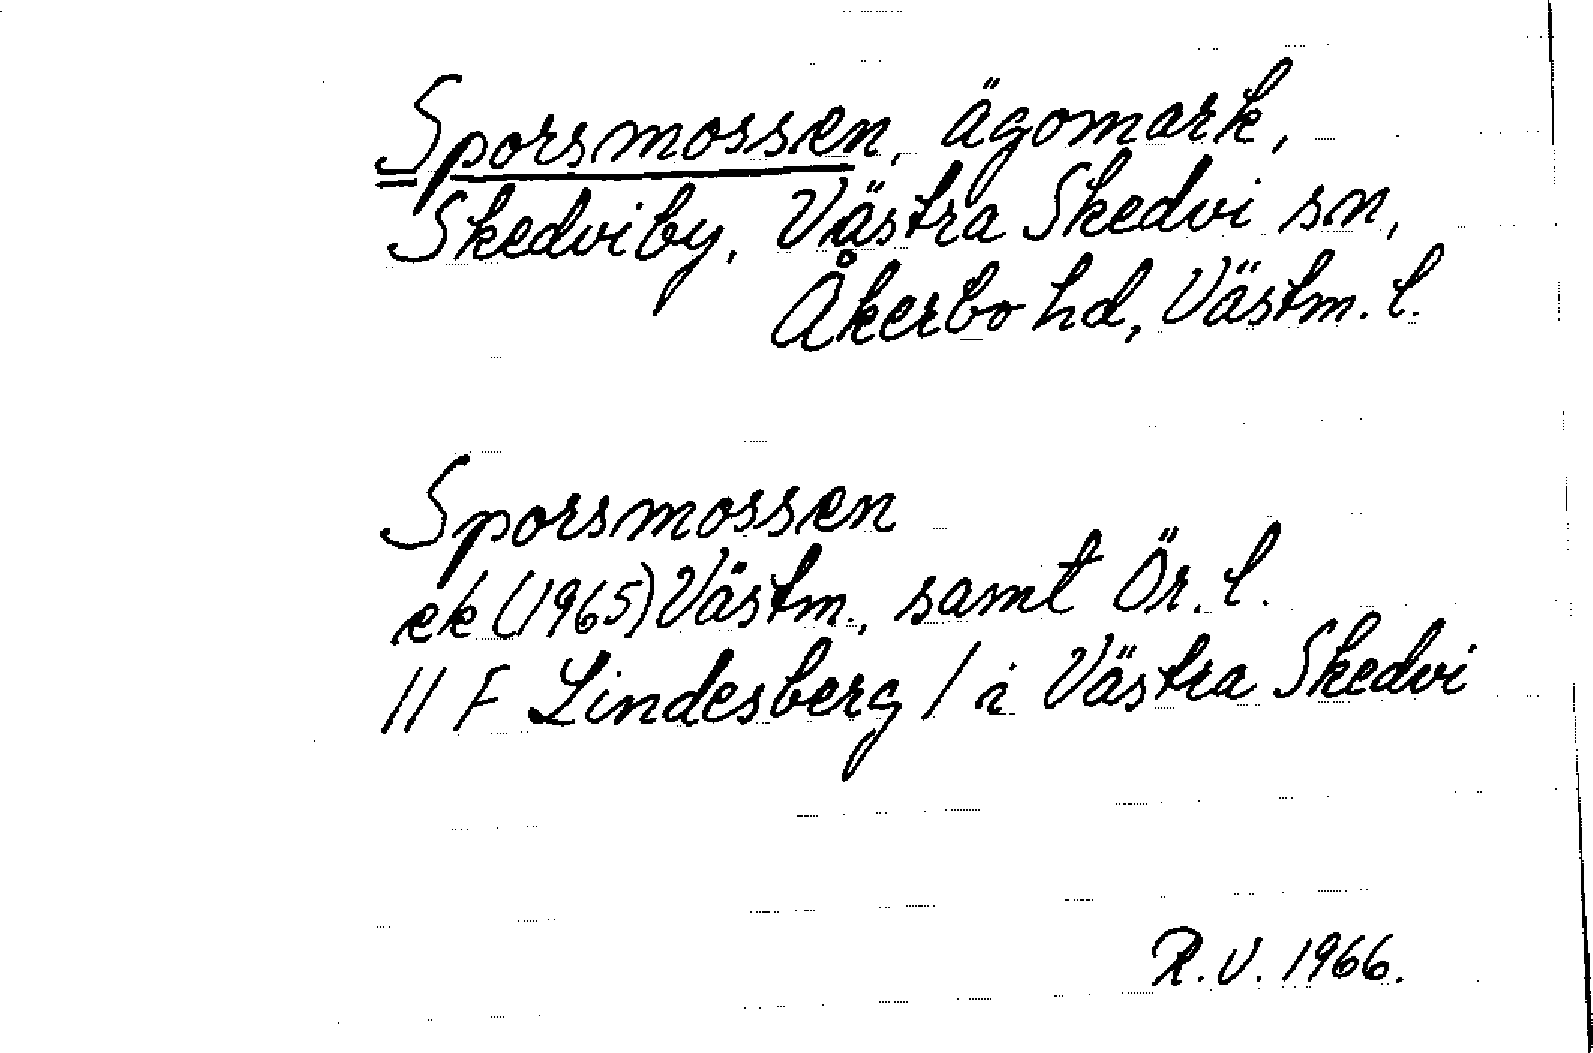 Sporsmossen, ägomark,
Skedviby, Västra Skedvi sn,
Åkerbo hd, Västm. l.
Sporsmossen
ek (1965) Västm., samt Ör. l.
11 F Lindesberg / i Västra Skedvi
R.V. 1966.